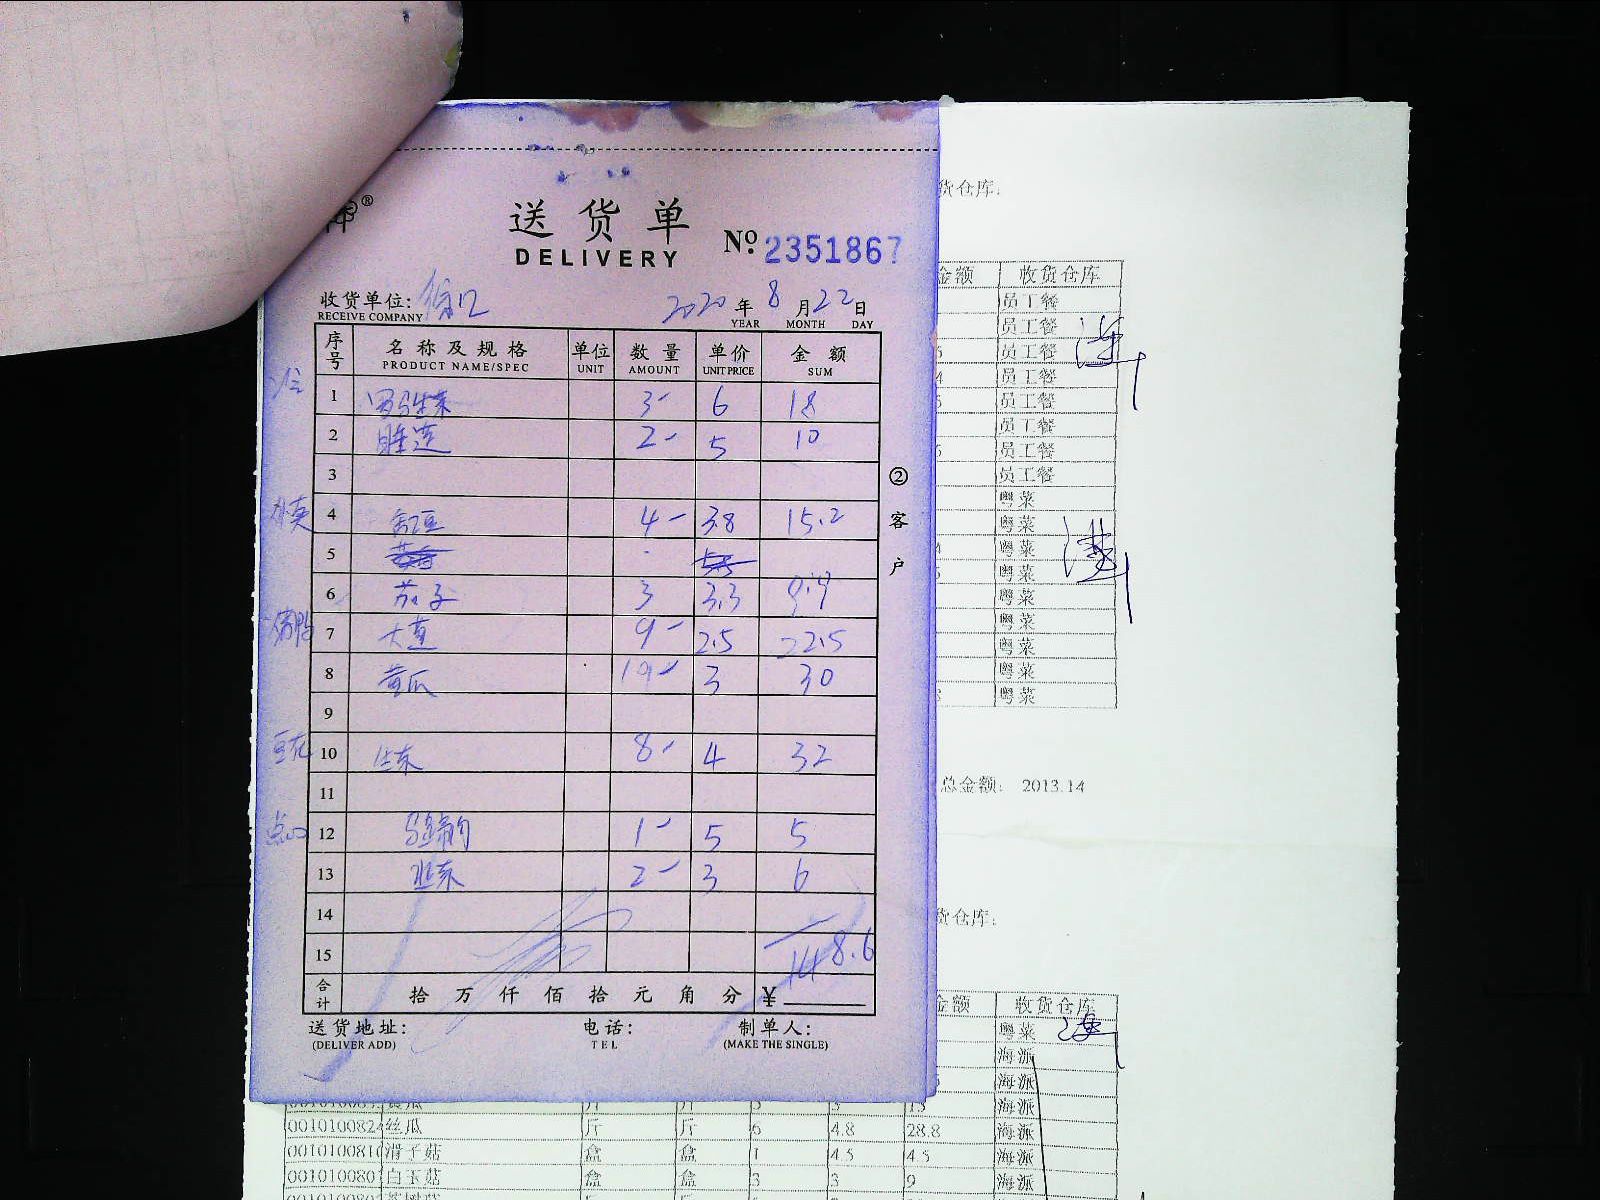 送货单
DELIVERY
№ 2351867
收货单位:
RECEIVE COMPANY
2020 年 8 月 22 日
YEAR MONTH DAY
序号 名称及规格 单位 数量 单价 金额
PRODUCT NAME/SPEC UNIT AMOUNT UNIT PRICE SUM
1 罗马生菜 3 6 18
2 2 5 10
3
外卖 4 4 3.8 15.2
5
6 茄子 3 3.3 9.9
烤鸭 7 大葱 9 2.5 22.5
8 黄瓜 10 3 30
9
豆花 10 8 4 32
11
点心 12 1 5 5
13 2 3 6
14
15 148.6
合计 拾万仟佰拾元角分 ¥
送货地址: 电话: 制单人:
(DELIVER ADD) TEL (MAKE THE SINGLE)
②客户
货仓库:
金额 收货仓库
员工餐
员工餐
员工餐
员工餐
员工餐
员工餐
员工餐
员工餐
粤菜
粤菜
粤菜
粤菜
粤菜
粤菜
粤菜
粤菜
粤菜
总金额: 2013.14
货仓库:
金额 收货仓库
粤菜
海派
海派
海派
0010100824 丝瓜 斤 斤 6 4.8 28.8 海派
0010100810 滑子菇 盒 盒 1 4.5 4.5 海派
001010080 白玉菇 盒 盒 3 3 9 海派